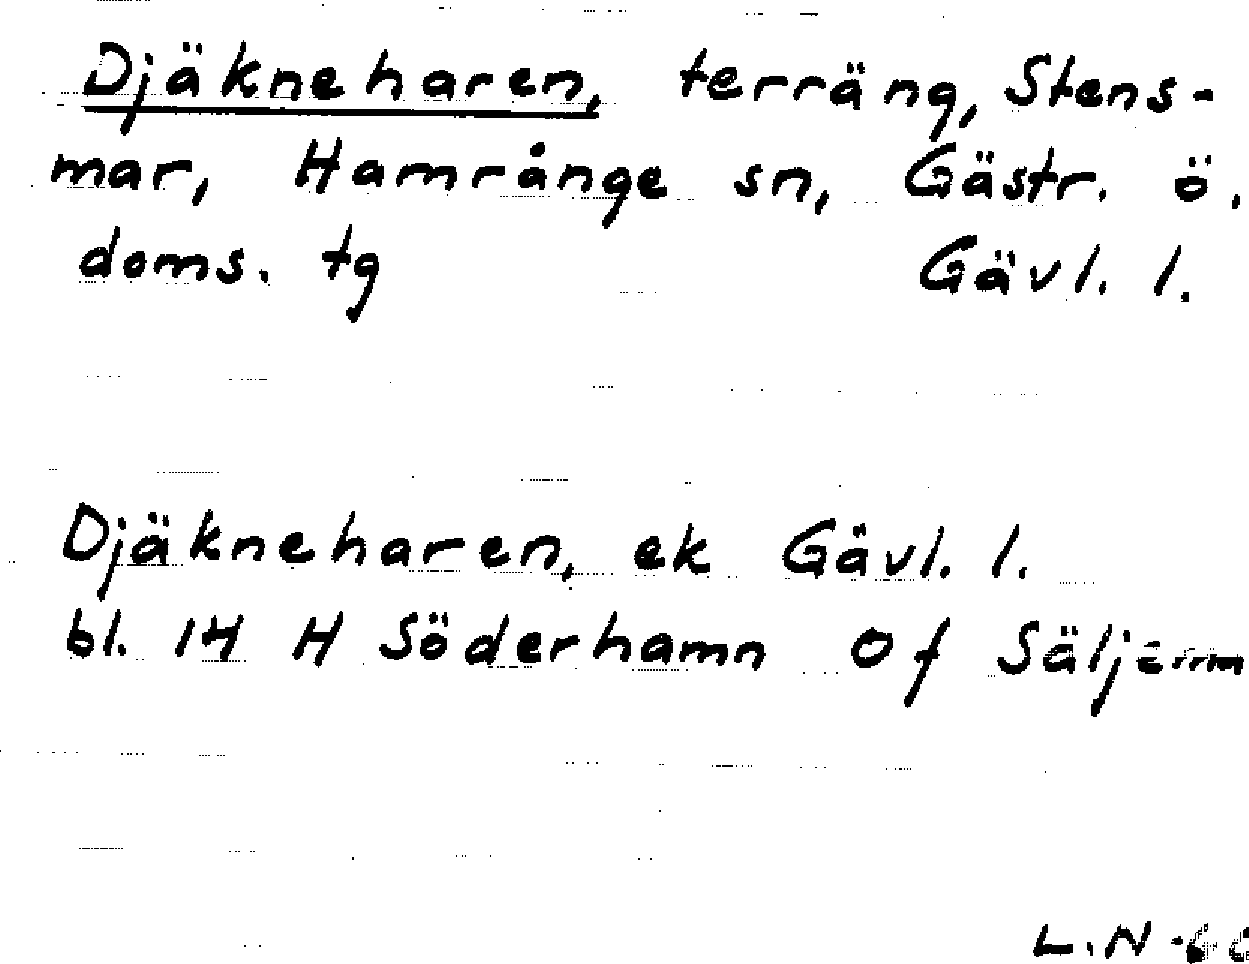 Djäkneharen, terräng, Stens-
mar, Hamrånge sn, Gästr. ö.
doms. tg Gävl. l.
Djäkneharen, ek Gävl. l.
bl. 14 H Söderhamn Of
L.N